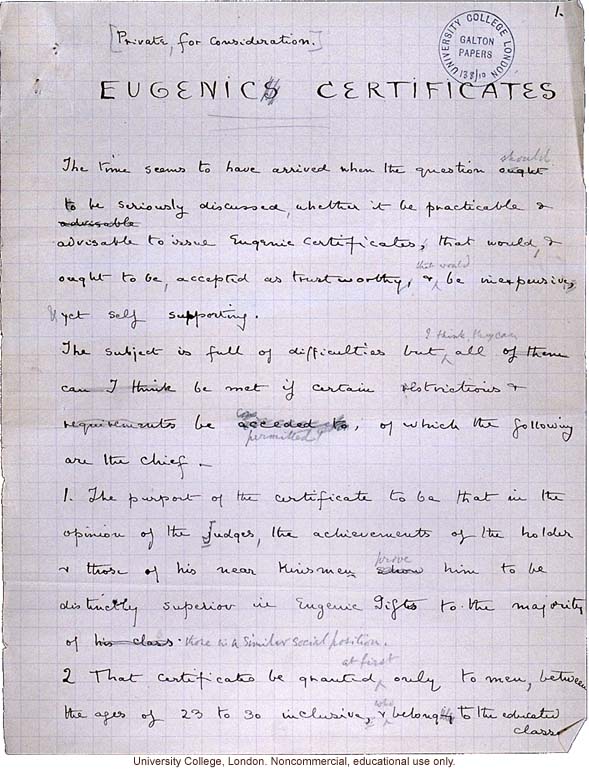 1.
[Private, for consideration.]
UNIVERSITY COLLEGE LONDON
GALTON
PAPERS
138/10
EUGENICS CERTIFICATES
should
The time seems to have arrived when the question ought
to be seriously discussed, whether it be practicable &
advisable
advisable to issue Eugenic Certificates, that would, &
that would
ought to be, accepted as trustworthy, & be inexpensive,
& yet self supporting.
I think, they can
The subject is full of difficulties but, all of them
can I think be met if certain restrictions &
requirements be acceded to, of which the following
permitted
are the chief.
1. The purport of the certificate to be that in the
opinion of the Judges, the achievements of the holder
prove
& those of his near Kinsmen show him to be
distinctly superior in Eugenic Gifts to the majority
of his class. those in a similar social position.
at first
2 That certificates be granted only to men, between
who
the ages of 23 to 30 inclusive, & belong to the educated
class
University College, London. Noncommercial, educational use only.